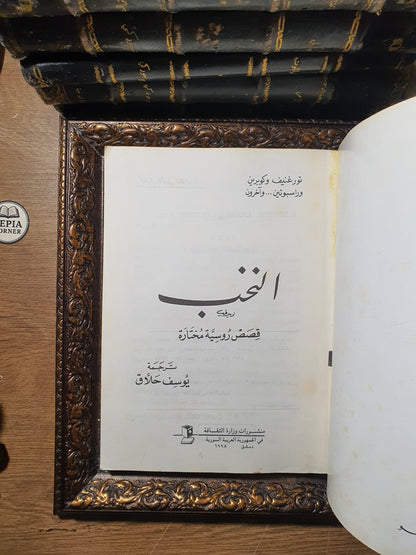 تورغنيف وكوبرين
وراسبوتين... وآخرون
النخب
قصص روسية مختارة
ترجمة
يوسف حلاق
منشورات وزارة الثقافة
في الجمهورية العربية السورية
دمشق ١٩٩٨
EPIA
ORNER